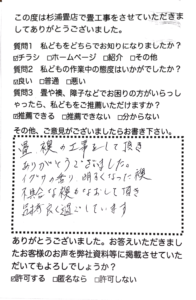 この度は杉浦畳店で畳工事をさせていただきま
してありがとうございました。
質問1 私どもをどちらでお知りになりましたか？
☑チラシ □ホームページ □紹介 □その他
質問2 私どもの作業中の態度はいかがでしたか？
☑良い □普通 □悪い
質問3 畳や襖、障子などでお困りの方がいらっし
ゃったら、私どもをご推薦いただけますか？
☑推薦できる □推薦できない □分からない
その他、ご意見がございましたらお書き下さい。
畳、襖の工事をして頂き
ありがとうございました。
イグサの香り 明るくなった襖
襖がなおして頂き
過ごしています
ありがとうございました。お答えいただきまし
たお客様のお声を弊社資料等に掲載させていた
だいてもよろしでしょうか？
☑許可する □匿名なら □許可しない